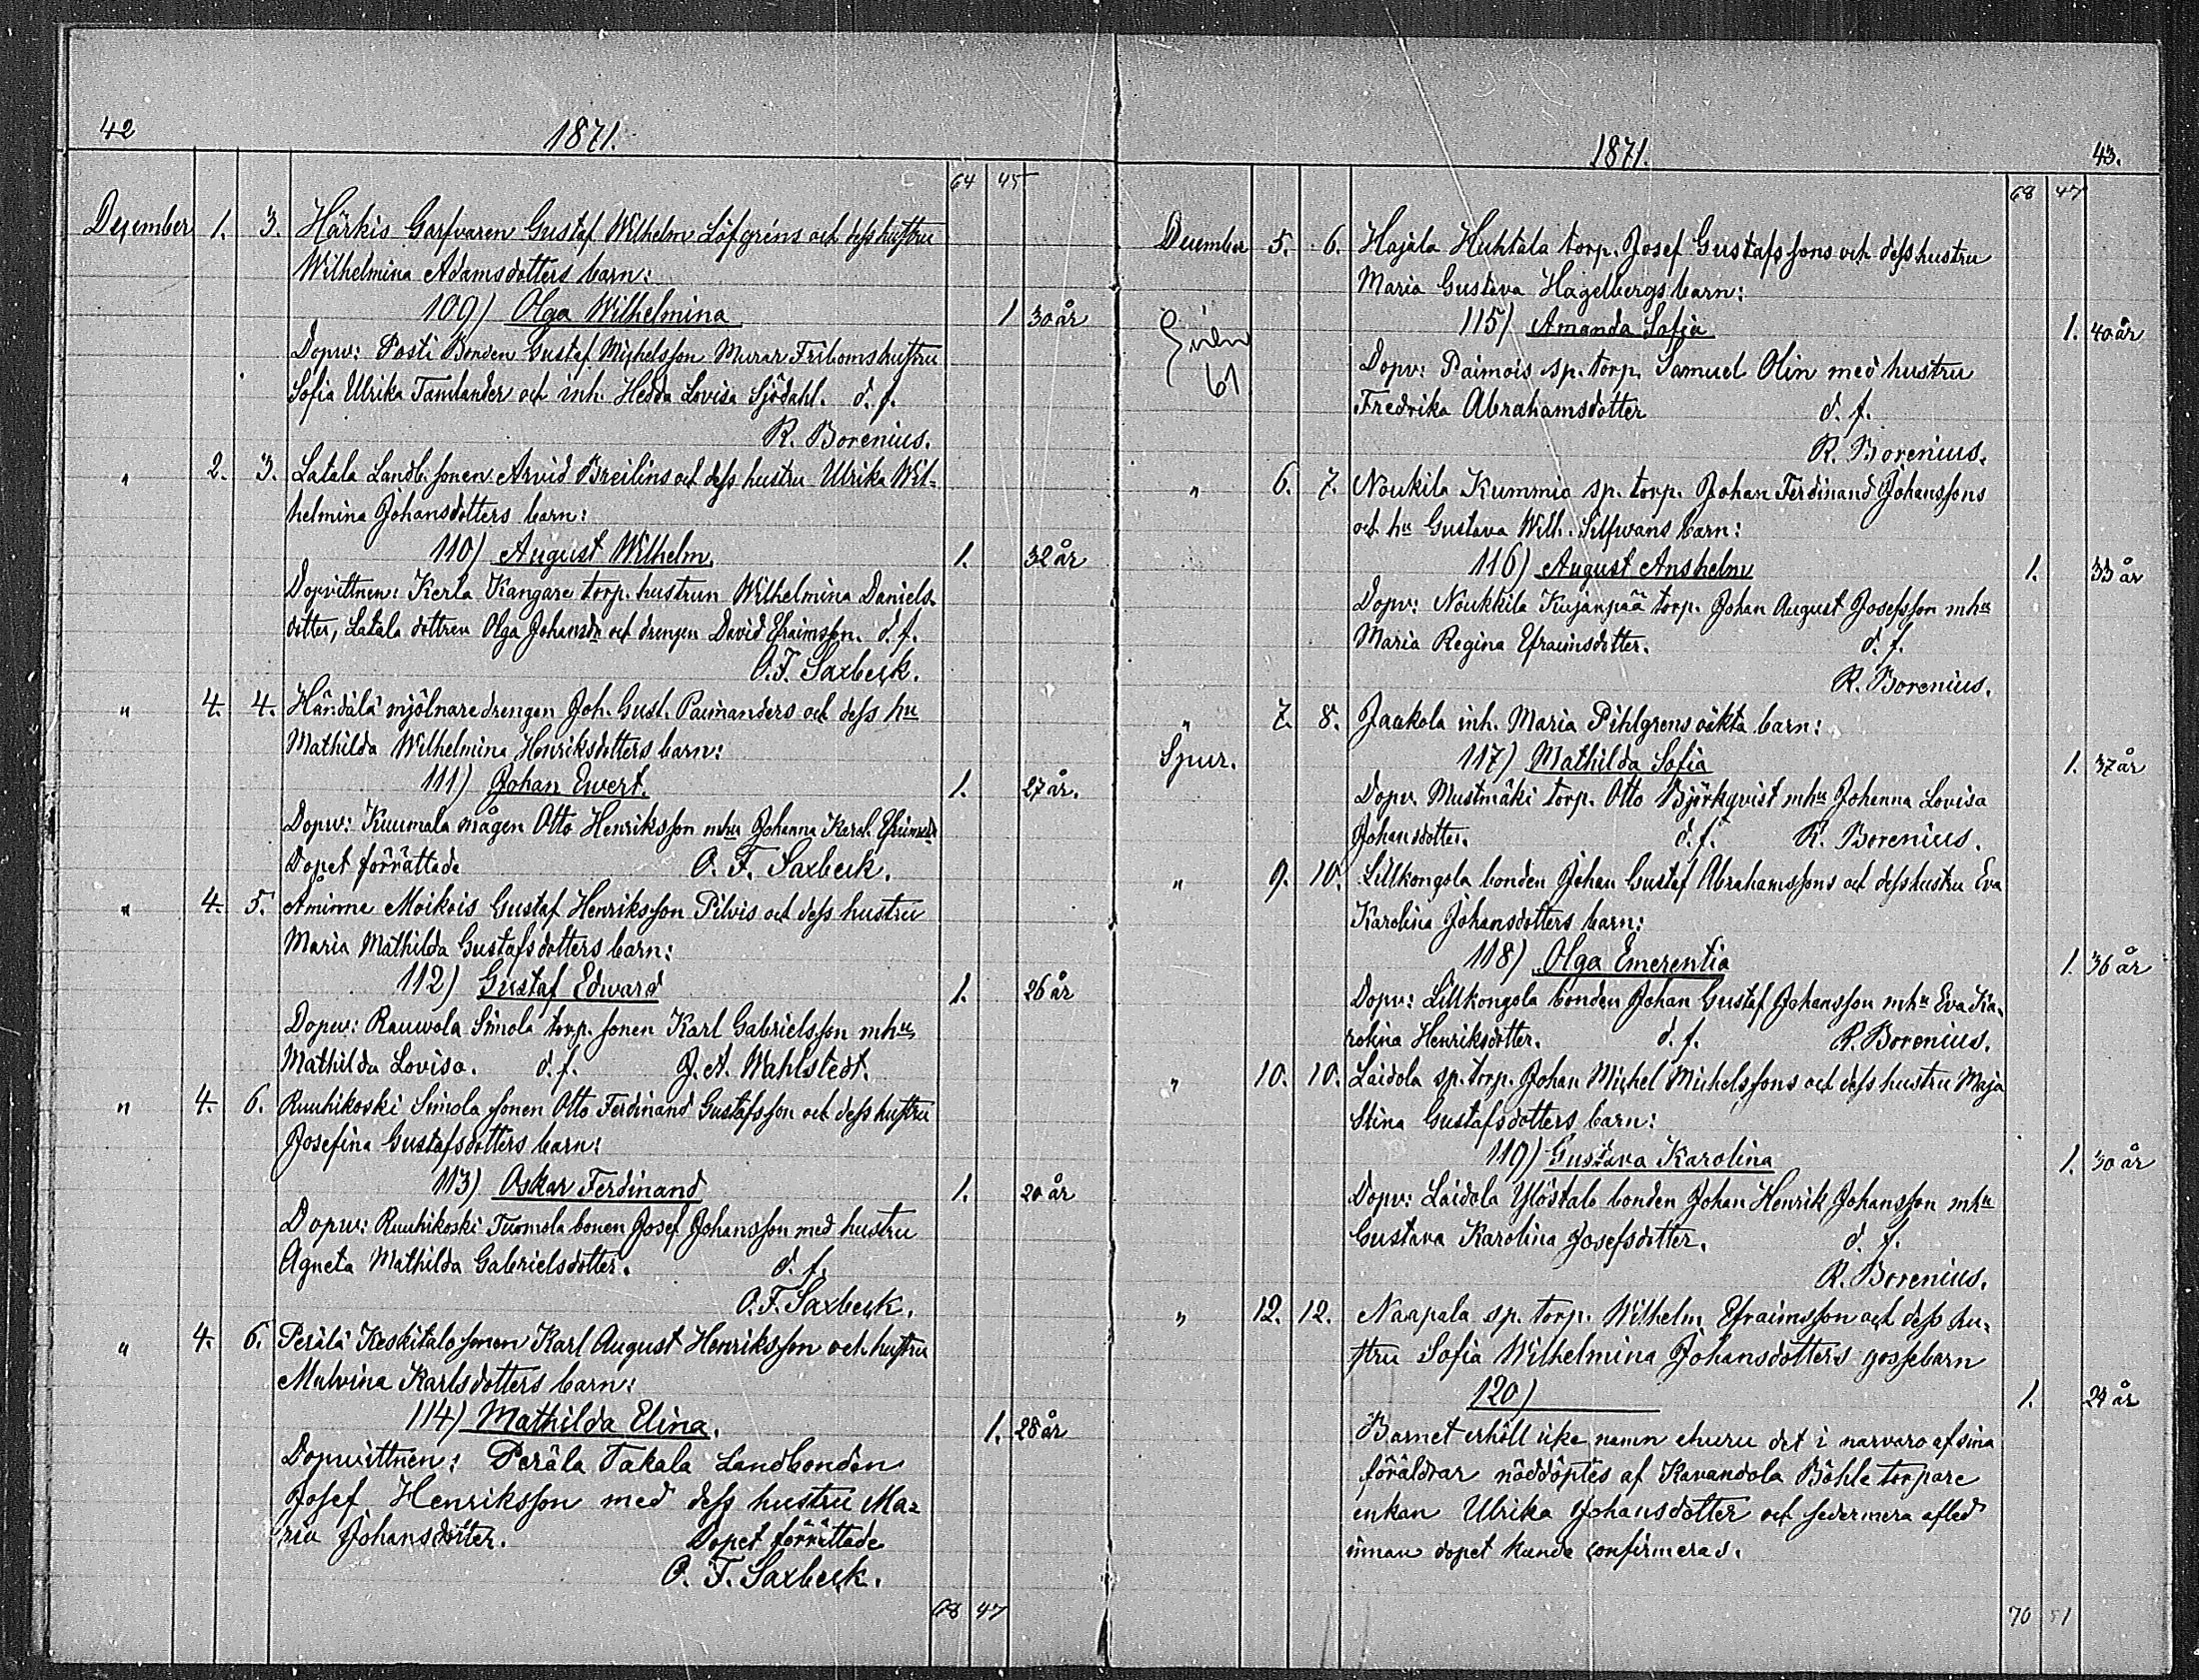 42
1871.
64 45
December 1. 3. Härkis Garfvaren Gustaf Wilhelm Löfgréns och dess hustru
Wilhelmina Adamsdotters barn:
109) Olga Wilhelmina 1 30 år
Dopv: Posti Bonden Gustaf Michelsson Murar Friboms hustru
Sofia Ulrika Tamlander och inh. Hedda Lovisa Sjödahl. d. f.
R. Borenius.
" 2. 3. Latala Landb. sonen Arvid Breilins och dess hustru Ulrika Wil-
helmina Johansdotters barn:
110) August Wilhelm. 1. 32 år
Dopvittnen: Kerla Kangare torp. hustrun Wilhelmina Daniels-
dotter, Latala dottren Olga Johansdr och drengen David Efraimsson. d. f.
O. F. Saxbeck.
" 4. 4. Händälä mjölnaredrengen Joh. Gust. Paimanders och dess hu
Mathilda Wilhelmina Henriksdotters barn:
111) Johan Ewert. 1. 27 år.
Dopv: Kuumala mågen Otto Henriksson mhu Johanna Karol. Efraimsdr
Dopet förrättade O. F. Saxbeck.
" 4. 5. Åminne Moikois Gustaf Henriksson Pilvis och dess hustru
Maria Mathilda Gustafsdotters barn:
112) Gustaf Edward 1. 26 år
Dopv: Rauwola Simola torp. sonen Karl Gabrielsson mhu
Mathilda Lovisa. d. f. J. A. Wahlstedt.
" 4. 6. Ruuhikoski Simola sonen Otto Ferdinand Gustafsson och dess hustru
Josefina Gustafsdotters barn:
113) Oskar Ferdinand 1. 20 år
Dopv: Ruuhikoski Tuomola bonen Josef Johansson med hustru
Agneta Mathilda Gabrielsdotter. d. f.
O. F. Saxbeck.
" 4. 6. Perälä Keskitalo sonen Karl August Henriksson och hustru
Malvina Karlsdotters barn:
114) Mathilda Elina. 1. 28 år
Dopvittnen: Peräla Takala Landbonden
Josef Henriksson med dess hustru Ma-
ria Johansdotter. Dopet förrättade
O. F. Saxbeck.
68 47
1871. 43.
68 47
December 5. 6. Hajala Huhtala torp. Josef Gustafssons och dess hustru
Maria Gustava Hagelbergs barn:
115) Amanda Sofia 1. 40 år
61
Dopv: Paimois sp. torp. Samuel Olin med hustru
Fredrika Abrahamsdotter d. f.
R. Borenius.
" 6. 7. Noukila Kummio sp. torp. Johan Ferdinand Johanssons
och hu Gustava Wilh. Silfwans barn:
116) August Anshelm 1. 33 år
Dopv: Noukkila Kujanpää torp. Johan August Josefsson mhu
Maria Regina Efraimsdotter. d. f.
R. Borenius.
" 7. 8. Jaakola inh. Maria Pihlgrens oäkta barn:
Spur. 117) Mathilda Sofia 1. 37 år
Dopv. Mustmäki torp. Otto Björkqvist mhu Johanna Lovisa
Johansdotter. d. f. R. Borenius.
" 9. 10. Lillkongola bonden Johan Gustaf Abrahamssons och dess hustru Eva
Karolina Johansdotters barn:
118) Olga Emerentia 1. 36 år
Dopv: Lillkongola bonden Johan Gustaf Johansson mhu Eva Ka-
rolina Henriksdotter. d. f. R. Borenius.
" 10. 10. Laidola sp. torp. Johan Michel Michelssons och dess hustru Maja
Stina Gustafsdotters barn:
119) Gustava Karolina 1. 30 år
Dopv: Laidola Ylöstalo bonden Johan Henrik Johansson mhu
Gustava Karolina Josefsdotter. d. f.
R. Borenius.
" 12. 12. Naapala sp. torp. Wilhelm Efraimsson och dess hu-
stru Sofia Wilhelmina Johansdotters gossebarn
120) 1. 24 år
Barnet erhöll icke namn ehuru det i narvaro af sina
föräldrar nöddöptes af Kavandola Böhle torpare
enkan Ulrika Johansdotter och sedermera afled
innan dopet kunde confirmeras.
70 51